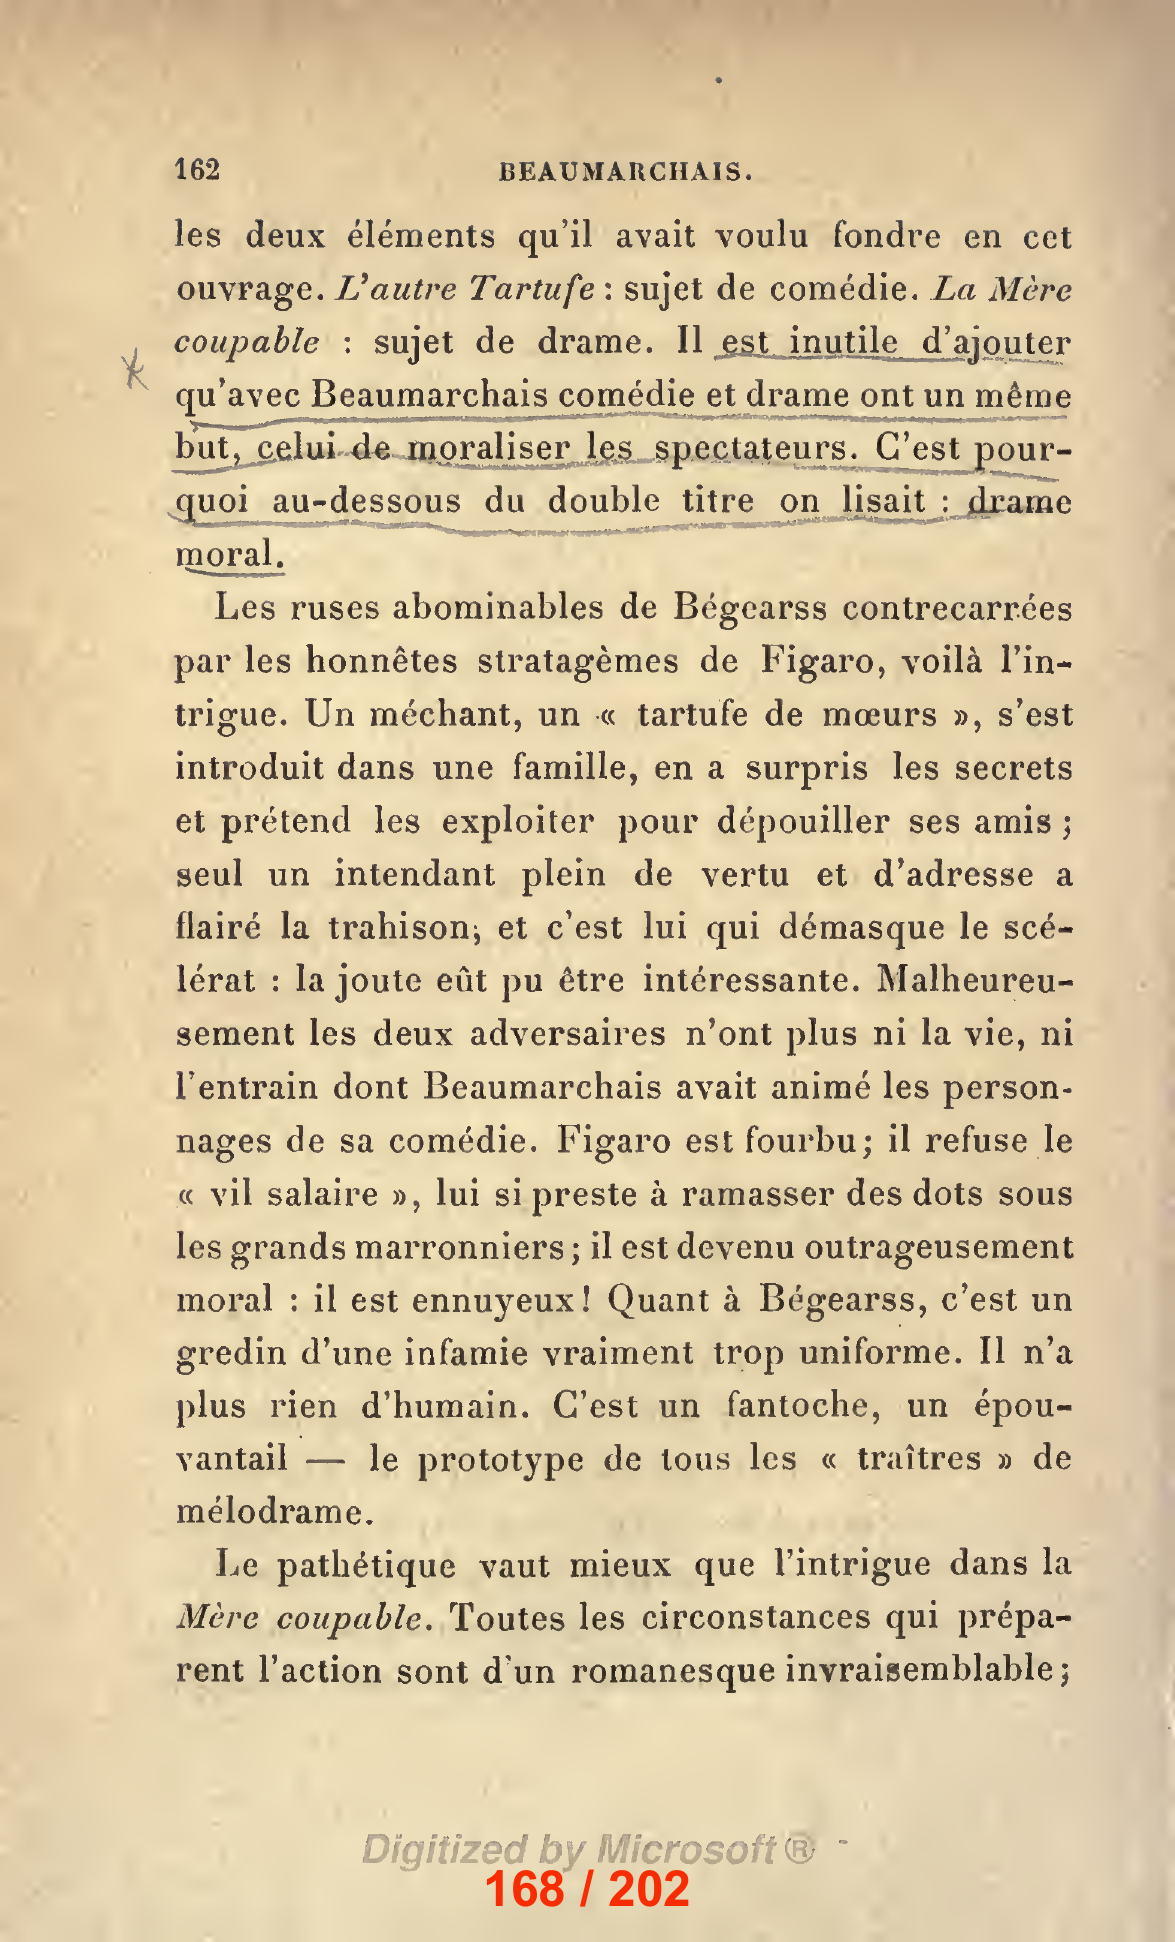 162 BEAUMARCHAIS.
les deux éléments qu'il avait voulu fondre en cet
ouvrage. L'autre Tartufe : sujet de comédie. La Mère
coupable : sujet de drame. Il est inutile d'ajouter
qu'avec Beaumarchais comédie et drame ont un même
but, celui de moraliser les spectateurs. C'est pour-
quoi au-dessous du double titre on lisait : drame
moral.
Les ruses abominables de Bégearss contrecarrées
par les honnêtes stratagèmes de Figaro, voilà l'in-
trigue. Un méchant, un « tartufe de mœurs », s'est
introduit dans une famille, en a surpris les secrets
et prétend les exploiter pour dépouiller ses amis ;
seul un intendant plein de vertu et d'adresse a
flairé la trahison; et c'est lui qui démasque le scé-
lérat : la joute eût pu être intéressante. Malheureu-
sement les deux adversaires n'ont plus ni la vie, ni
l'entrain dont Beaumarchais avait animé les person-
nages de sa comédie. Figaro est fourbu; il refuse le
« vil salaire », lui si preste à ramasser des dots sous
les grands marronniers ; il est devenu outrageusement
moral : il est ennuyeux! Quant à Bégearss, c'est un
gredin d'une infamie vraiment trop uniforme. Il n'a
plus rien d'humain. C'est un fantoche, un épou-
vantail — le prototype de tous les « traîtres » de
mélodrame.
Le pathétique vaut mieux que l'intrigue dans la
Mère coupable. Toutes les circonstances qui prépa-
rent l'action sont d'un romanesque invraisemblable ;
Digitized by Microsoft ®
168 / 202